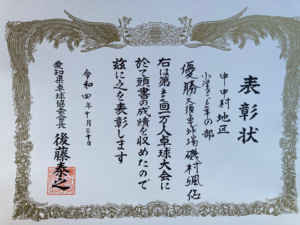 表彰状
中・中村地区
小学5・6年の部
優勝 大須卓球場 磯村颯佑
右は第 回万人卓球大会に
於て頭書の成績を収めたので
茲に之を表彰します
令和四年十月三十日
愛知県卓球協会会長 後藤泰之